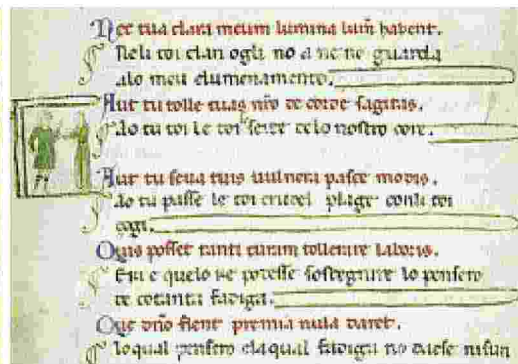 Nec tua clara meum lumina lumen habent.
Neli toi clari ogli no a ne no guarda
alo meu alumenamento.
Aut tu tolle tuas nostro de corde sagitas.
Ao tu toi le toi sente delo nostro core.
Aut tu seua tuis uulnera pasce modis.
Ao tu passe le toi crudel plage conli toi
Quis posset tanti curam tollerare laboris.
E ki e quelo ke potesse sostegnire lo pensero
de cotanta fadiga.
Que domino fient premia nula daret.
loqual pensero elaqual fadiga no daese nisun